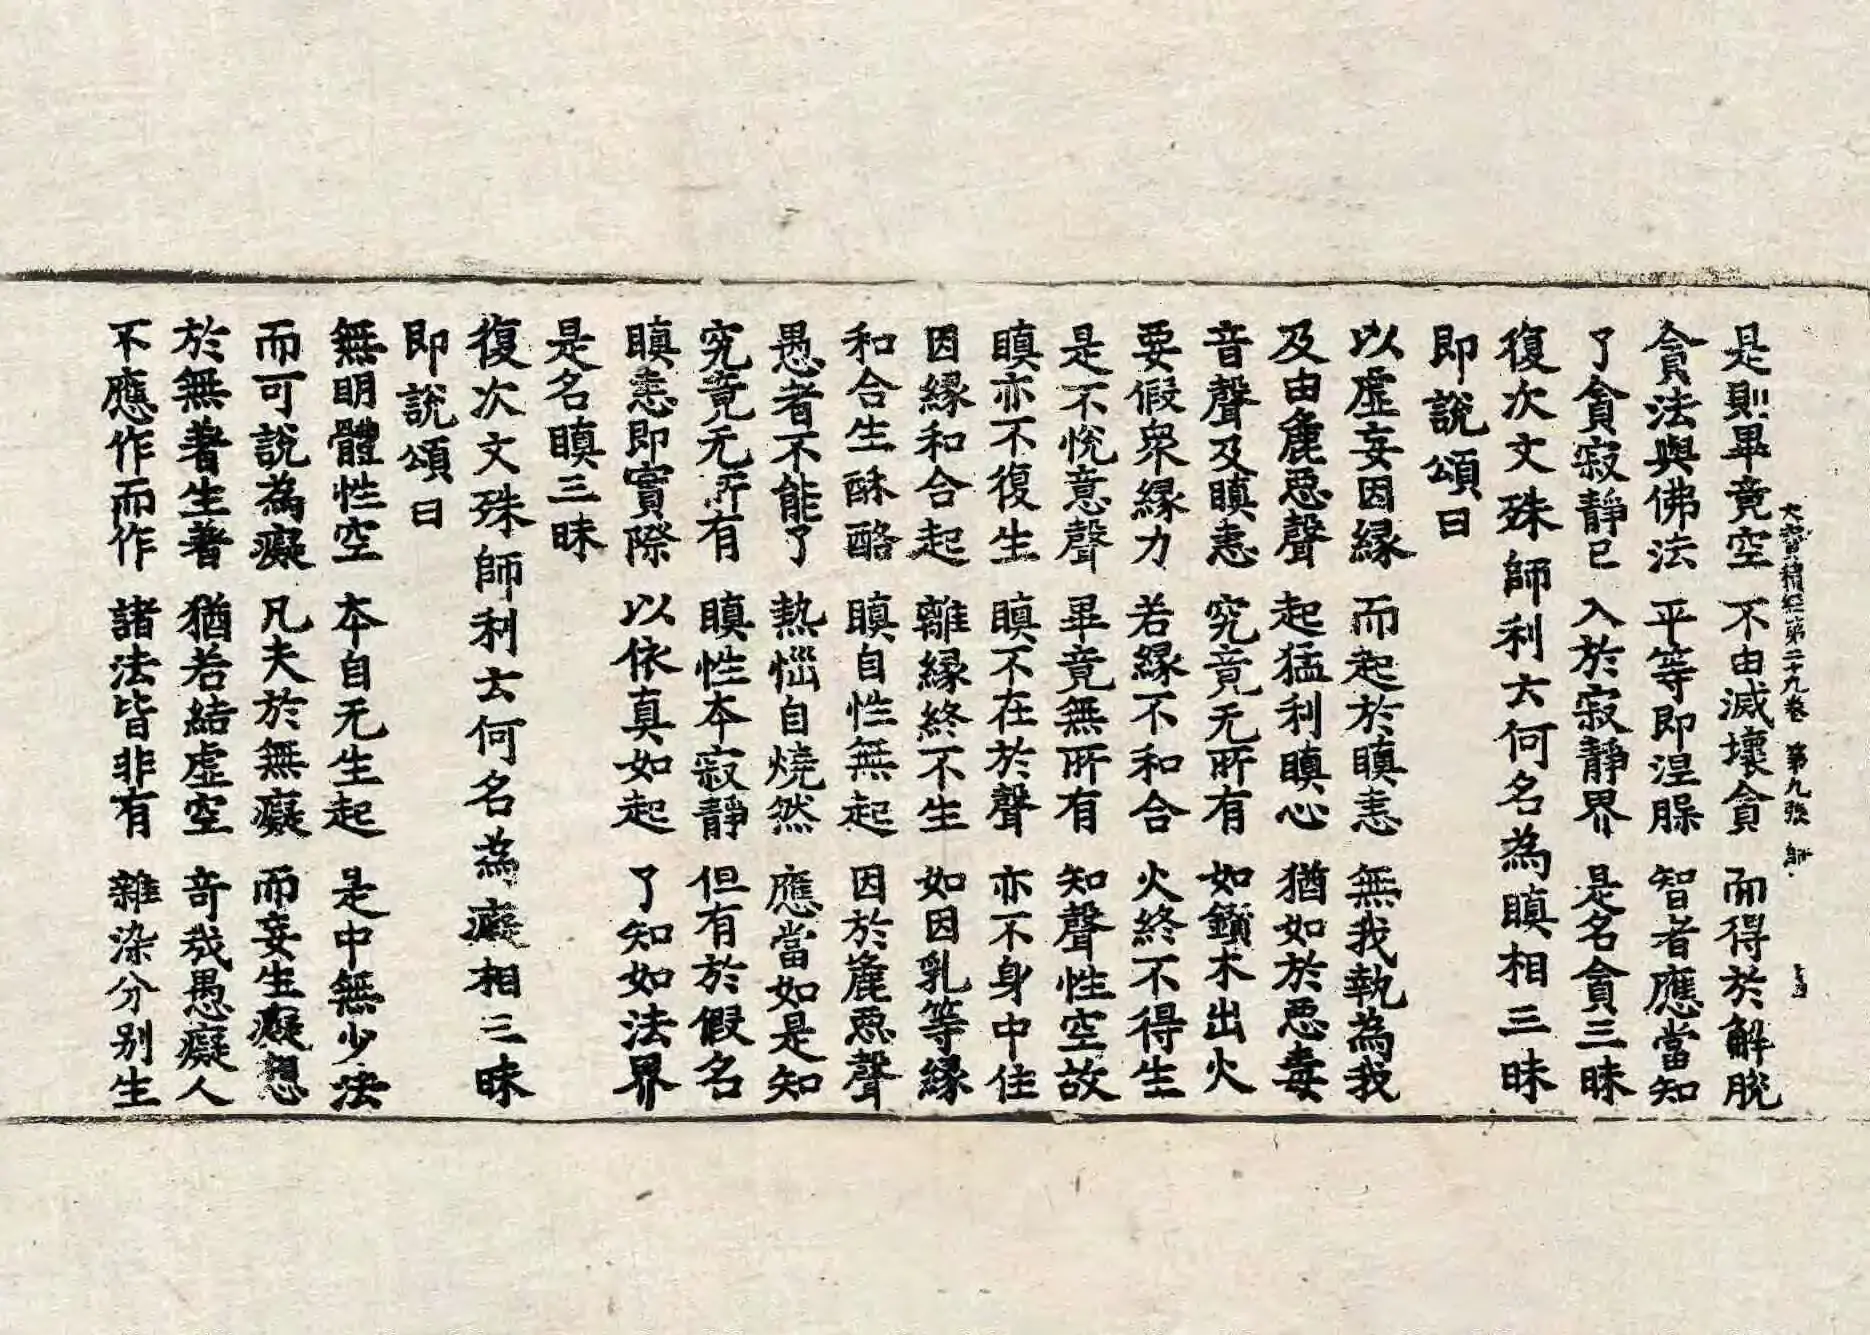 是則畢竟空　不由滅壞貪　而得於解脫
大寶積經第二十九卷　第九張　師
貪法與佛法　平等即涅槃　智者應當知
了貪寂靜已　入於寂靜界　是名貪三昧
復次文殊師利云何名為瞋相三昧
即說頌曰
以虛妄因緣　而起於瞋恚　無我執為我
及由麁惡聲　起猛利瞋心　猶如於惡毒
音聲及瞋恚　究竟无所有　如鑽木出火
要假眾緣力　若緣不和合　火終不得生
是不悅意聲　畢竟無所有　知聲性空故
瞋亦不復生　瞋不在於聲　亦不身中住
因緣和合起　離緣終不生　如因乳等緣
和合生酥酪　瞋自性無起　因於麁惡聲
愚者不能了　熱惱自燒然　應當如是知
究竟无所有　瞋性本寂靜　但有於假名
瞋恚即實際　以依真如起　了知如法界
是名瞋三昧
復次文殊師利云何名為癡相三昧
即說頌曰
無明體性空　本自无生起　是中無少法
而可說為癡　凡夫於無癡　而妄生癡想
於無著生著　猶若結虛空　奇哉愚癡人
不應作而作　諸法皆非有　雜染分別生